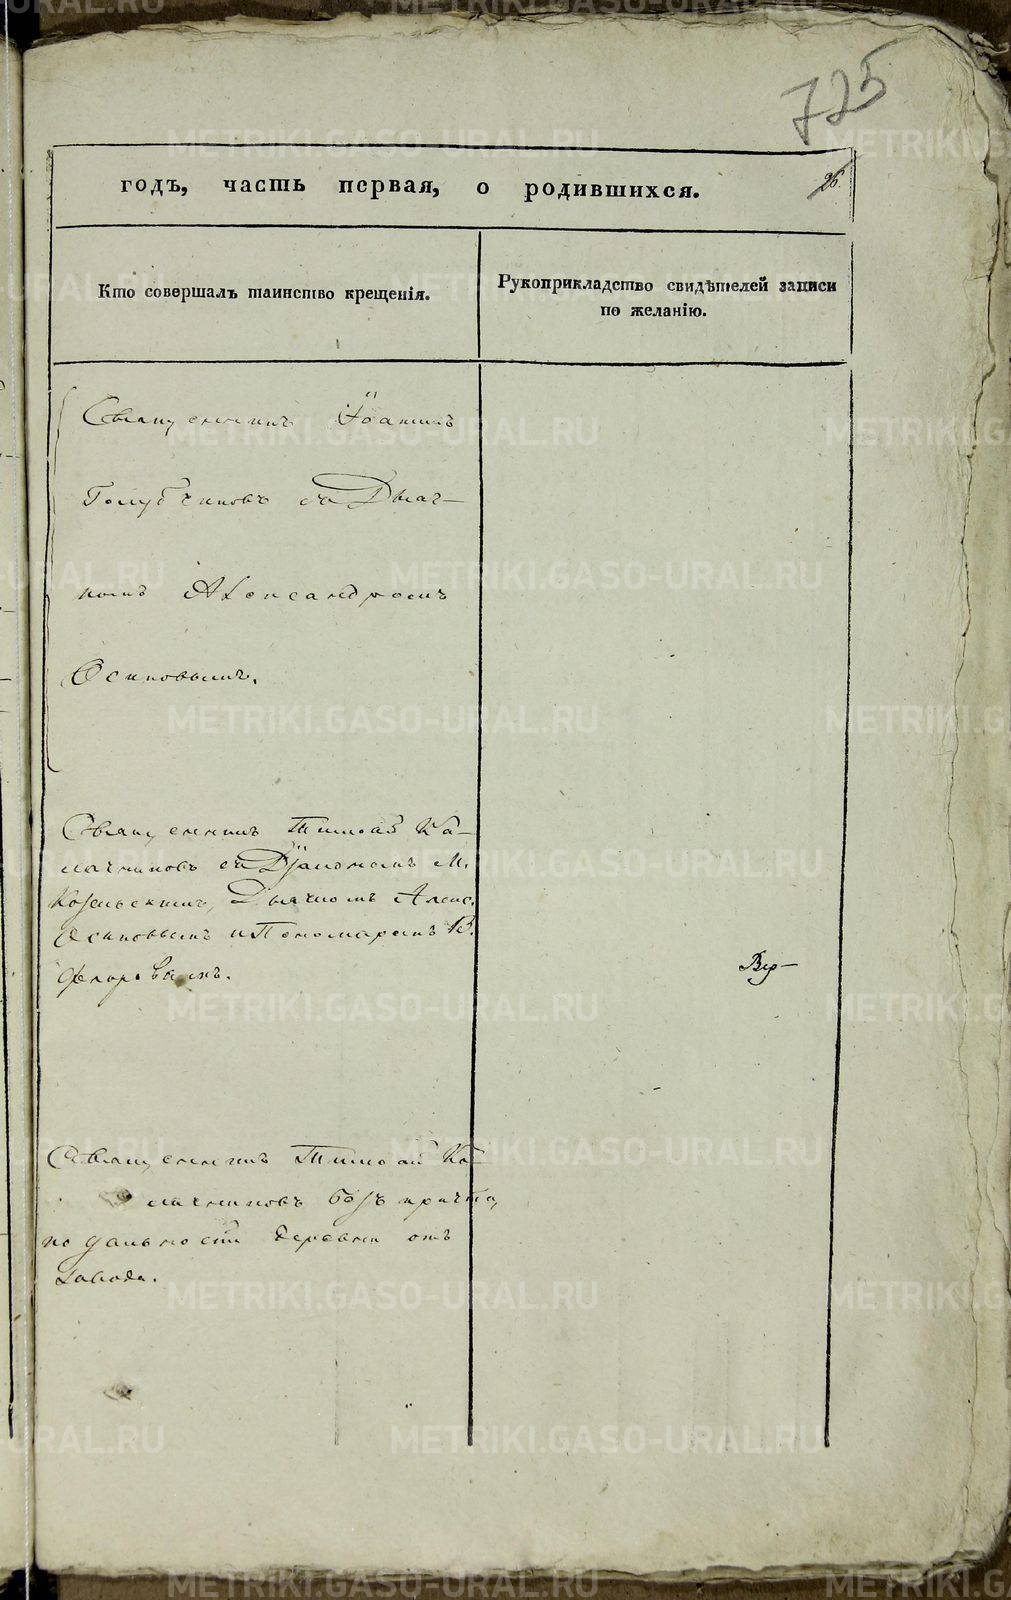 725
годъ, часть первая, о родившихся.
26
Кто совершалъ таинство крещенія.
Рукоприкладство свидѣтелей записи
по желанію.
Священникъ Іоаннъ
Голубчиковъ съ Дьяч-
комъ Александромъ
Осиповымъ.
Священникъ Тимофей Ка-
лачниковъ съ Діакономъ М.
Козельскимъ, Дьячкомъ Алекс.
Осиповымъ и Пономаремъ В.
Флоровымъ.
Вѣр-
Священникъ Тимофей Ка-
лачниковъ безъ причта,
по дальности деревни отъ
завода.
METRIKI.GASO-URAL.RU